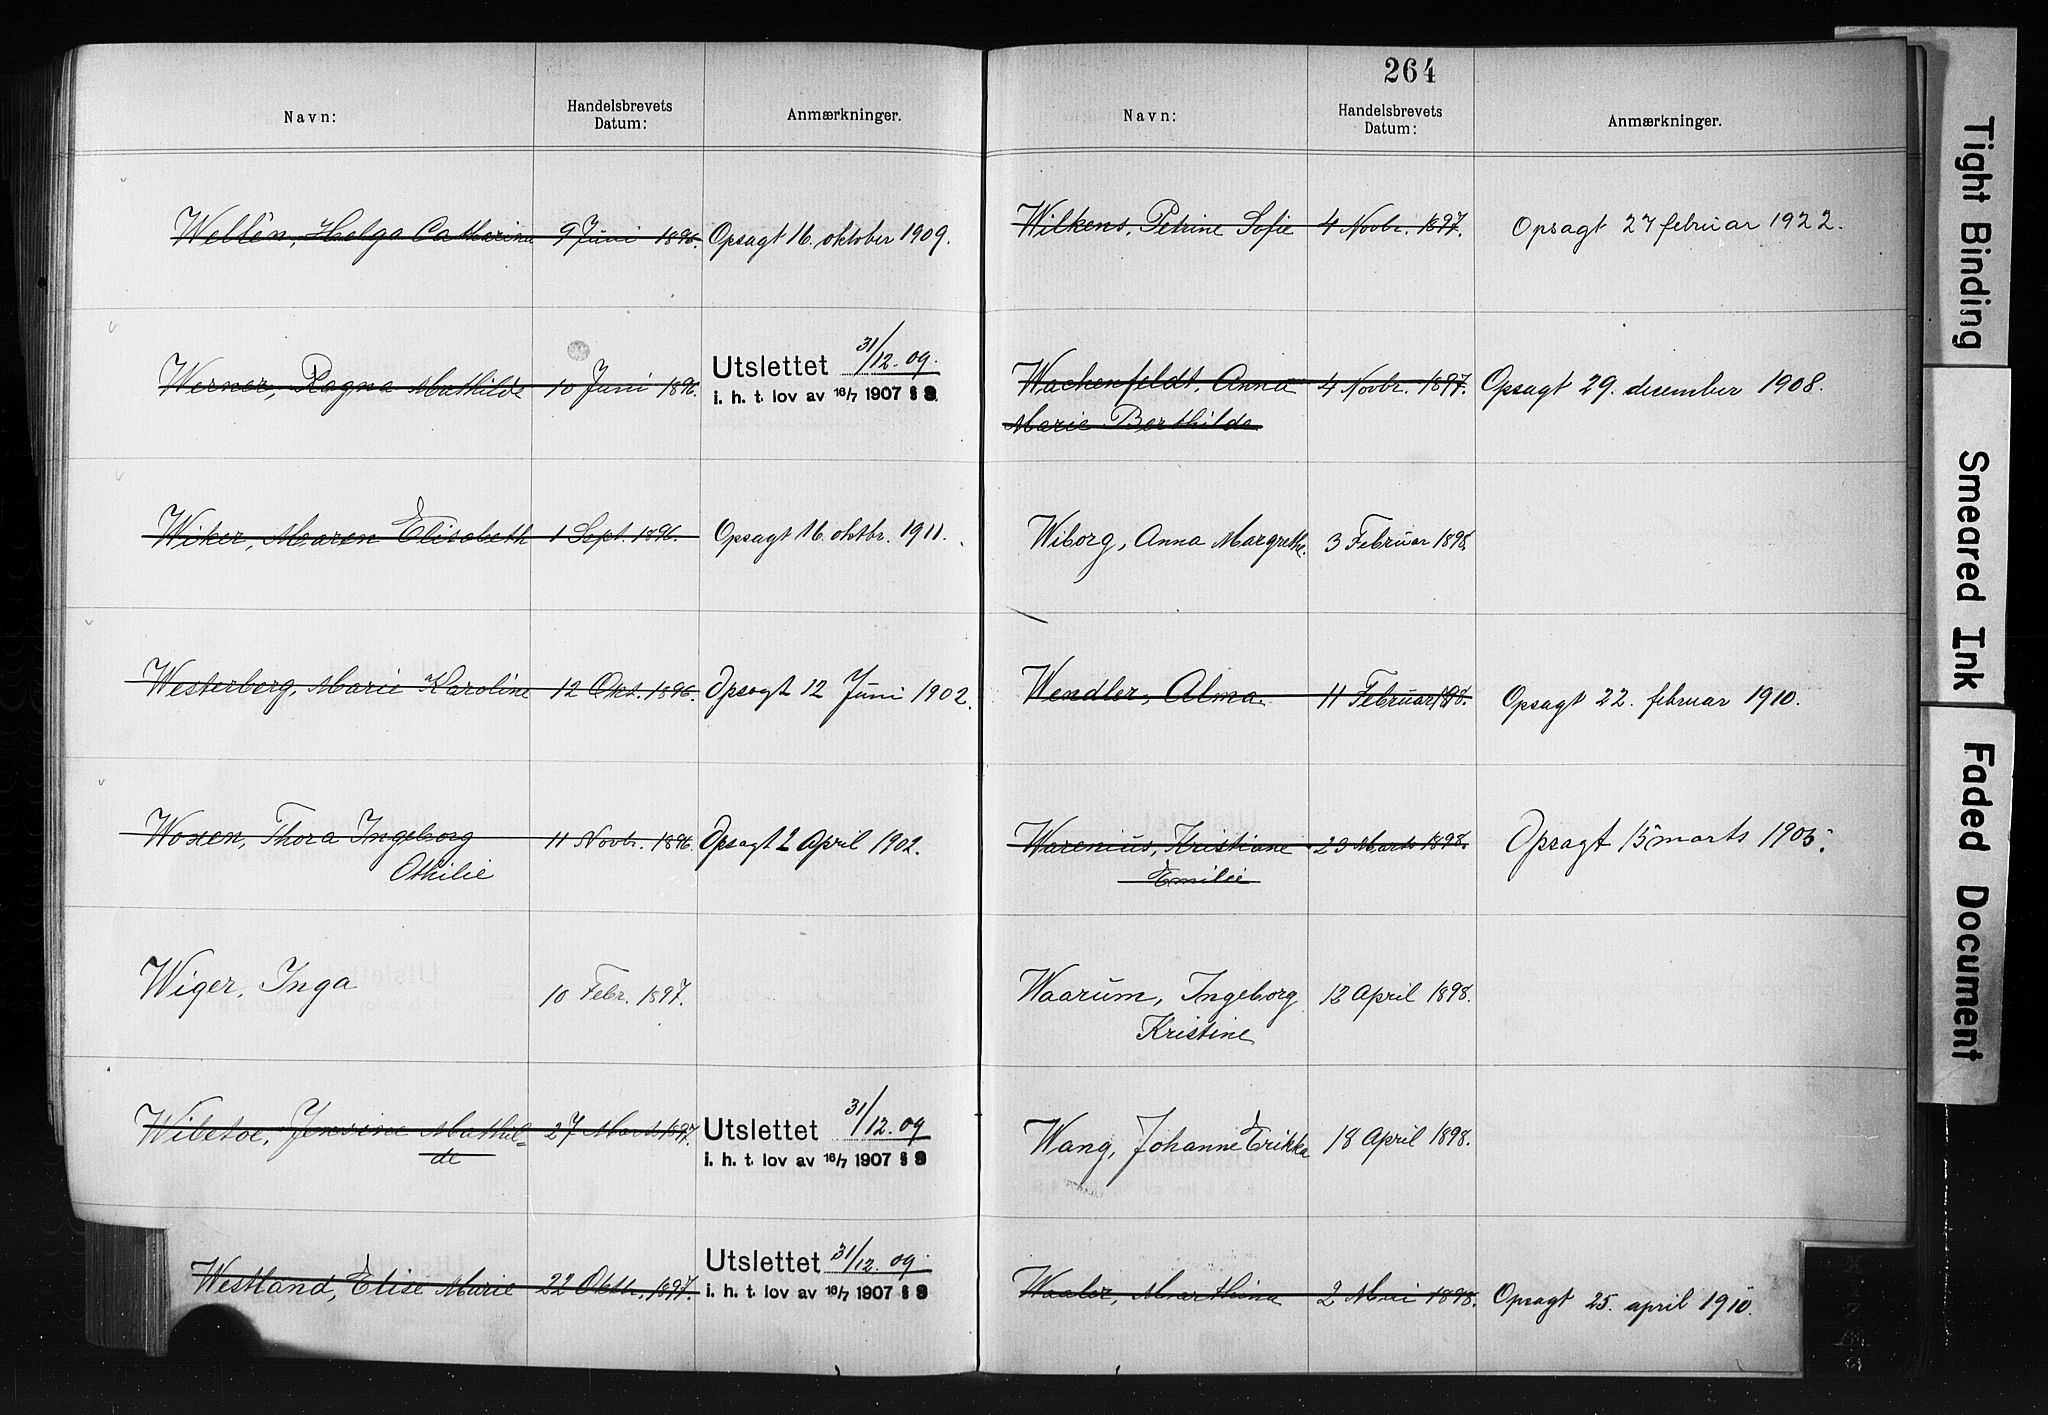 Navn: Handelsbrevets Datum: Anmærkninger.
Wellên, Helga Catharina 9 Juni 1896. Opsagt 16. oktober 1909.
Werner, Ragna Mathilde 10 Juni 1896. Utslettet 31/12. 09.
i. h. t. lov av 16/7 1907 § 9.
Wiker, Maren Elisabeth 1 Sept. 1896. Opsagt 16. oktbr. 1911.
Westerberg, Marie Karoline 12 Okt. 1896. Opsagt 12 Juni 1902.
Woxen, Thora Ingeborg 11 Novbr. 1896. Opsagt 2 April 1902.
Othilie
Wiger, Inga 10 Febr. 1897.
Wibetoe, Jensine Mathil= 27 Marts 1897. Utslettet 31/12. 09
de i. h. t. lov av 16/7 1907 § 9
Westland, Elise Marie 22 Oktb. 1897. Utslettet 31/12. 09.
i. h. t. lov av 16/7 1907 § 9
264
Navn: Handelsbrevets Datum: Anmærkninger.
Wilkens, Petrine Sofie 4 Novbr. 1897. Opsagt 27 februar 1922.
Wachenfeldt, Anna 4 Novbr. 1897. Opsagt 29. desember 1908.
Marie Berthilde
Wiborg, Anna Margrethe. 3 Februar 1898.
Wendler, Alma 11 Februar 198. Opsagt 22. februar 1910.
Warenius, Kristiane 23 Marts 1898. Opsagt 15 marts 1905.
Emilie
Waarum, Ingeborg 12 April 1898.
Kristine
Wang, Johanne Erikka 18 April 1898.
Waaler, Marthina 2 Mai 1898. Opsagt 25. april 1910.
Tight Binding
Smeared Ink
Faded Document